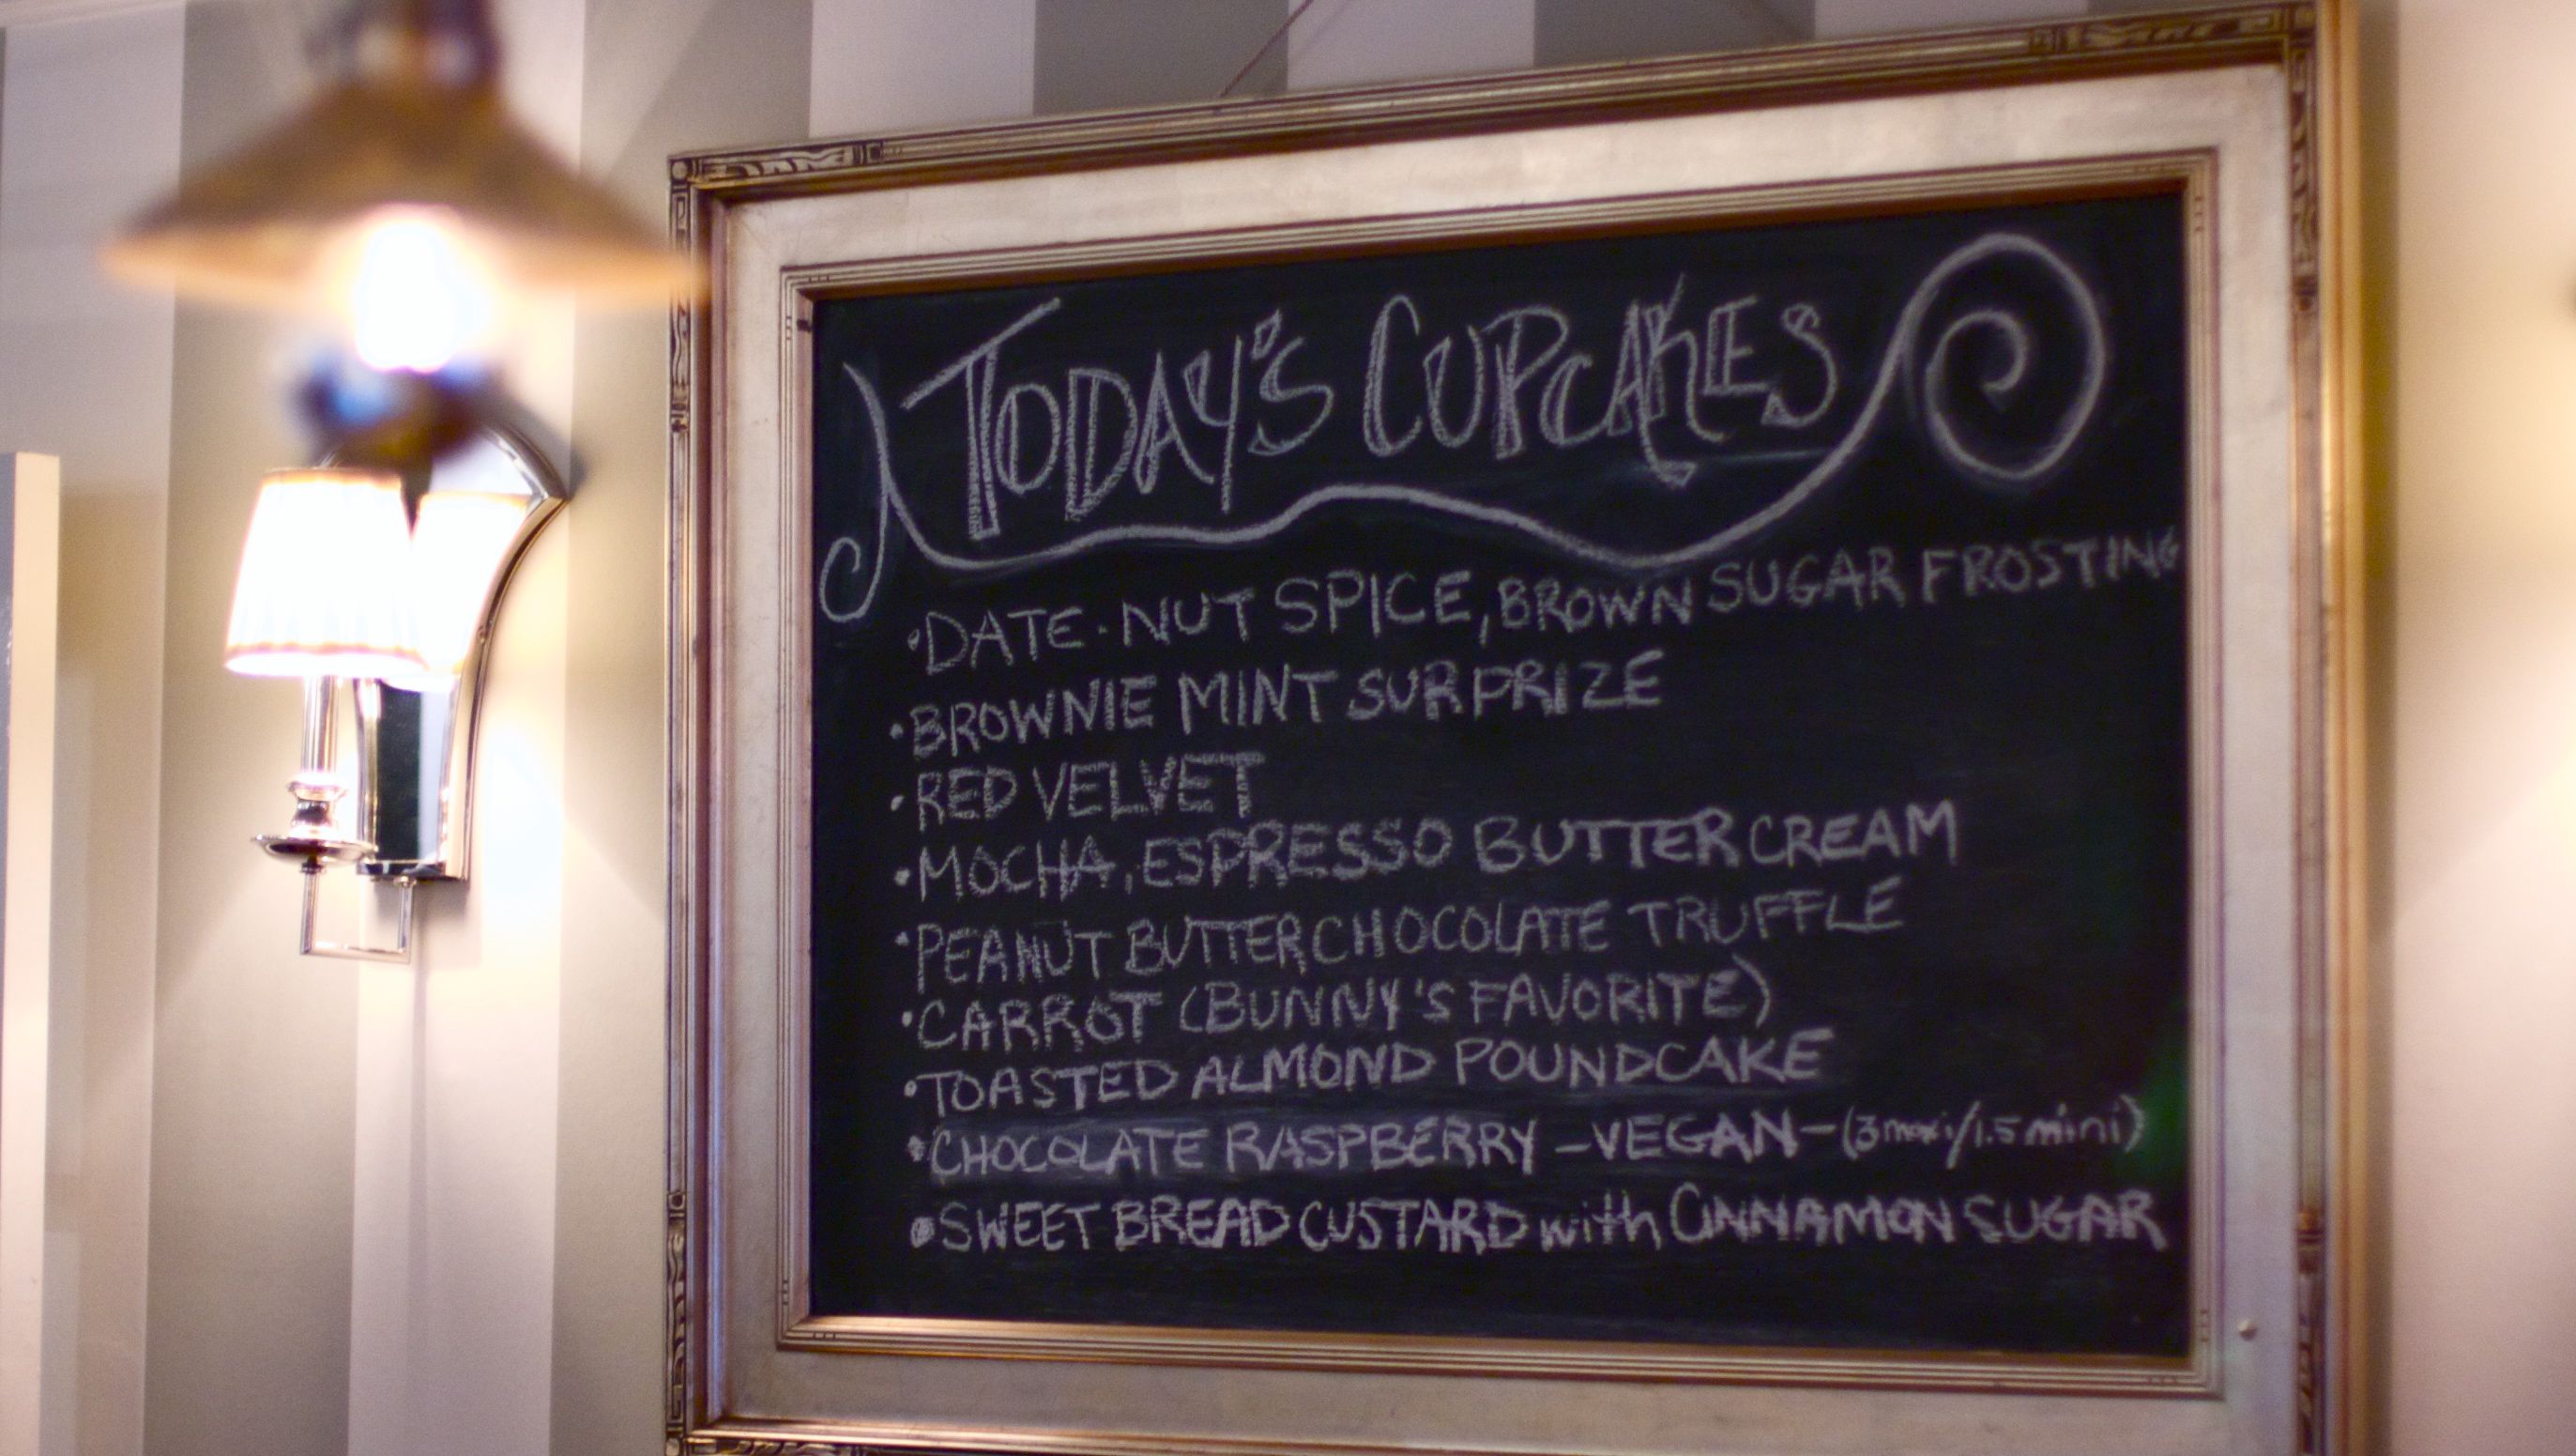 TODAY'S CUPCAKES
•DATE-NUT SPICE, BROWN SUGAR FROSTING
•BROWNIE MINT SURPRIZE
•RED VELVET
•MOCHA, ESPRESSO BUTTERCREAM
•PEANUT BUTTER CHOCOLATE TRUFFLE
•CARROT (BUNNY'S FAVORITE)
•TOASTED ALMOND POUNDCAKE
•CHOCOLATE RASPBERRY -VEGAN- (3 maxi/1.5 mini)
•SWEET BREAD CUSTARD with CINNAMON SUGAR